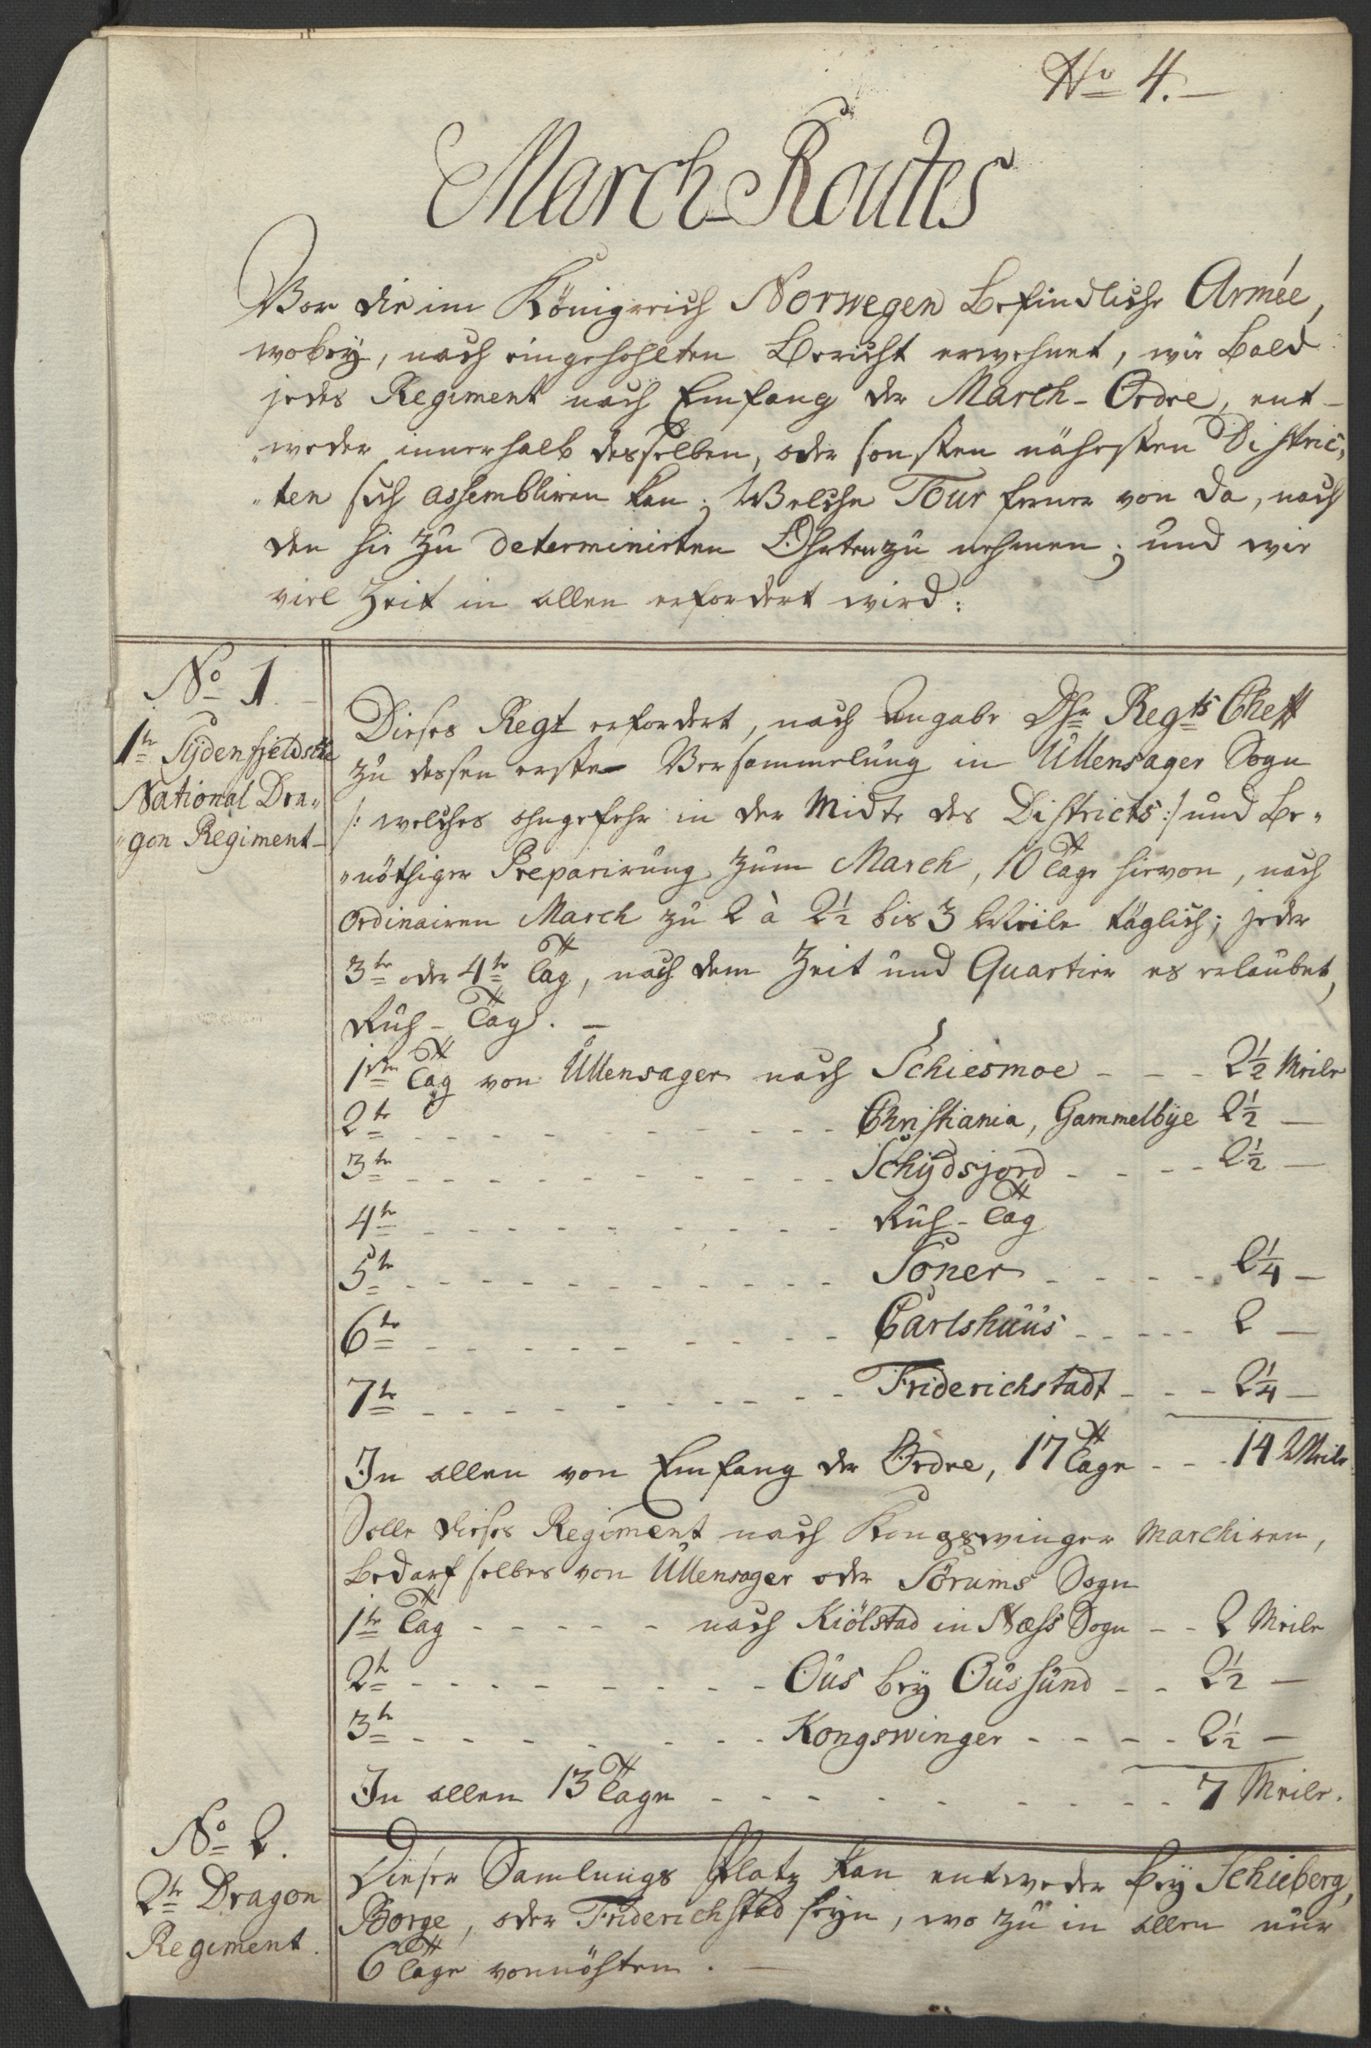 No 4.
March-Routes
Vor die im Königreich Norwegen befindliche Armée,
wobey, nach eingehohlten Bericht erwehnet, wie bald
jedes Regiment nach Emfang der March-Ordre, ent-
weder innerhalb desselben, oder sonsten nähesten Distric-
ten sich assembliren kan; Welche Tour ferner von da, nach
den hie zu determinirten Ohrten zu nehmen; und wie
viel Zeit in allen erfordert wird:
No 1.
1te Sydenfjeldske
National Dra-
gon Regiment
Dieses Regt erfordert, nach Angabe Dhr Regts Cheff
zu dessen erste Versammelung in Ullensager Sogn
/: welches ohngefehr in der Midte des Districts :/ und be-
nöthiger Preparirung zum March, 10 Tage hievon, nach
ordinairen March zu 2 à 2½ bis 3 Meile täglich; jeder
3te oder 4te Tag, nach dem Zeit und Quartier es erlaubet,
Ruh-Tag.
1ste Tag von Ullensager nach Schiesmoe - - - 2½ Meile
2te - - - Christiania, Gammelbye 2½ —
3te - - - Schydsjord - - - 2½ —
4te - - - Ruh-Tag
5te - - - Soner - - - 2¼ —
6te - - - Carlshuus - - - 2 —
7te - - - Friderichstadt - - - 2¼ —
In allen von Emfang der Ordre, 17 Tage - - - 14 Meile
Solle dieses Regiment nach Kongswinger marchiren,
bedarf selbes von Ullensager oder Sörums Sogn
1te Tag - - - nach Kiölstad in Næss Sogn - - 2 Meile
2te - - - Ous bey Oussund - - 2½ —
3te - - - Kongswinger - - - 2½ —
In allen 13 Tage - - - 7 Meile.
No 2.
2te Dragon
Regiment.
Dieser Samlungs Platz kan entweder bey Schieberg,
Borge, oder Friderichstad seyn, wo zu in allen nur
6 Tage vonnöhten.